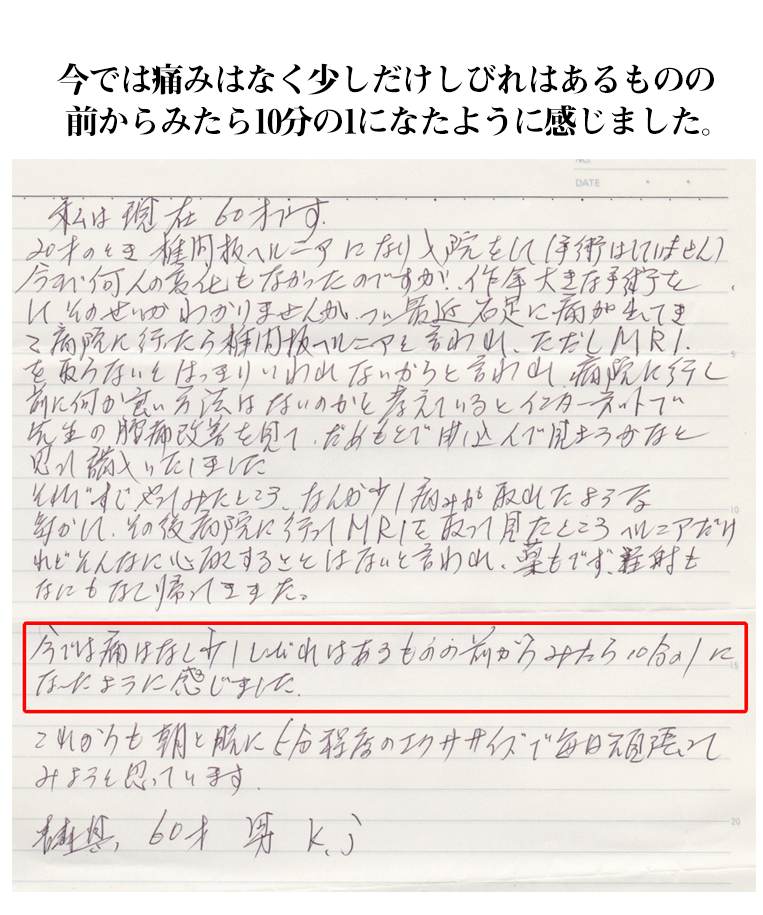 今では痛みはなく少しだけしびれはあるものの
前からみたら10分の1になたように感じました。
NO.
DATE
私は現在60才です.
20才のとき椎間板ヘルニアになり入院をして(手術はしていません)
今まで何人の変化もなかったのですが!、作年大きな手術を
してそのせいかわかりませんが、つい最近右足に痛が出てき
て病院に行ったら椎間板ヘルニアと言われ、ただしMRI.
を取らないとはっきりいわれないからと言われ、病院に行く
前に何か良い方法はないのかと考えているとインターネットで
先生の腰痛改善を見て、だめもとで申し込んで見ようかなと
思って購入いたしました
それですぐやってみたところ、なんか少し痛みが取れたような
気がして、その後病院に行ってMRIを取って見たところヘルニアだけ
れどそんなに心配することはないと言われ、薬もでず、注射も
なにもなく帰ってきました。
今では痛はなく少ししびれはあるものの前からみたら10分の1に
なったように感じました.
これからも朝と晩に5分程度のエクササイズで毎日頑張って
みようと思っています.
60才 男 K,j
5
10
15
20